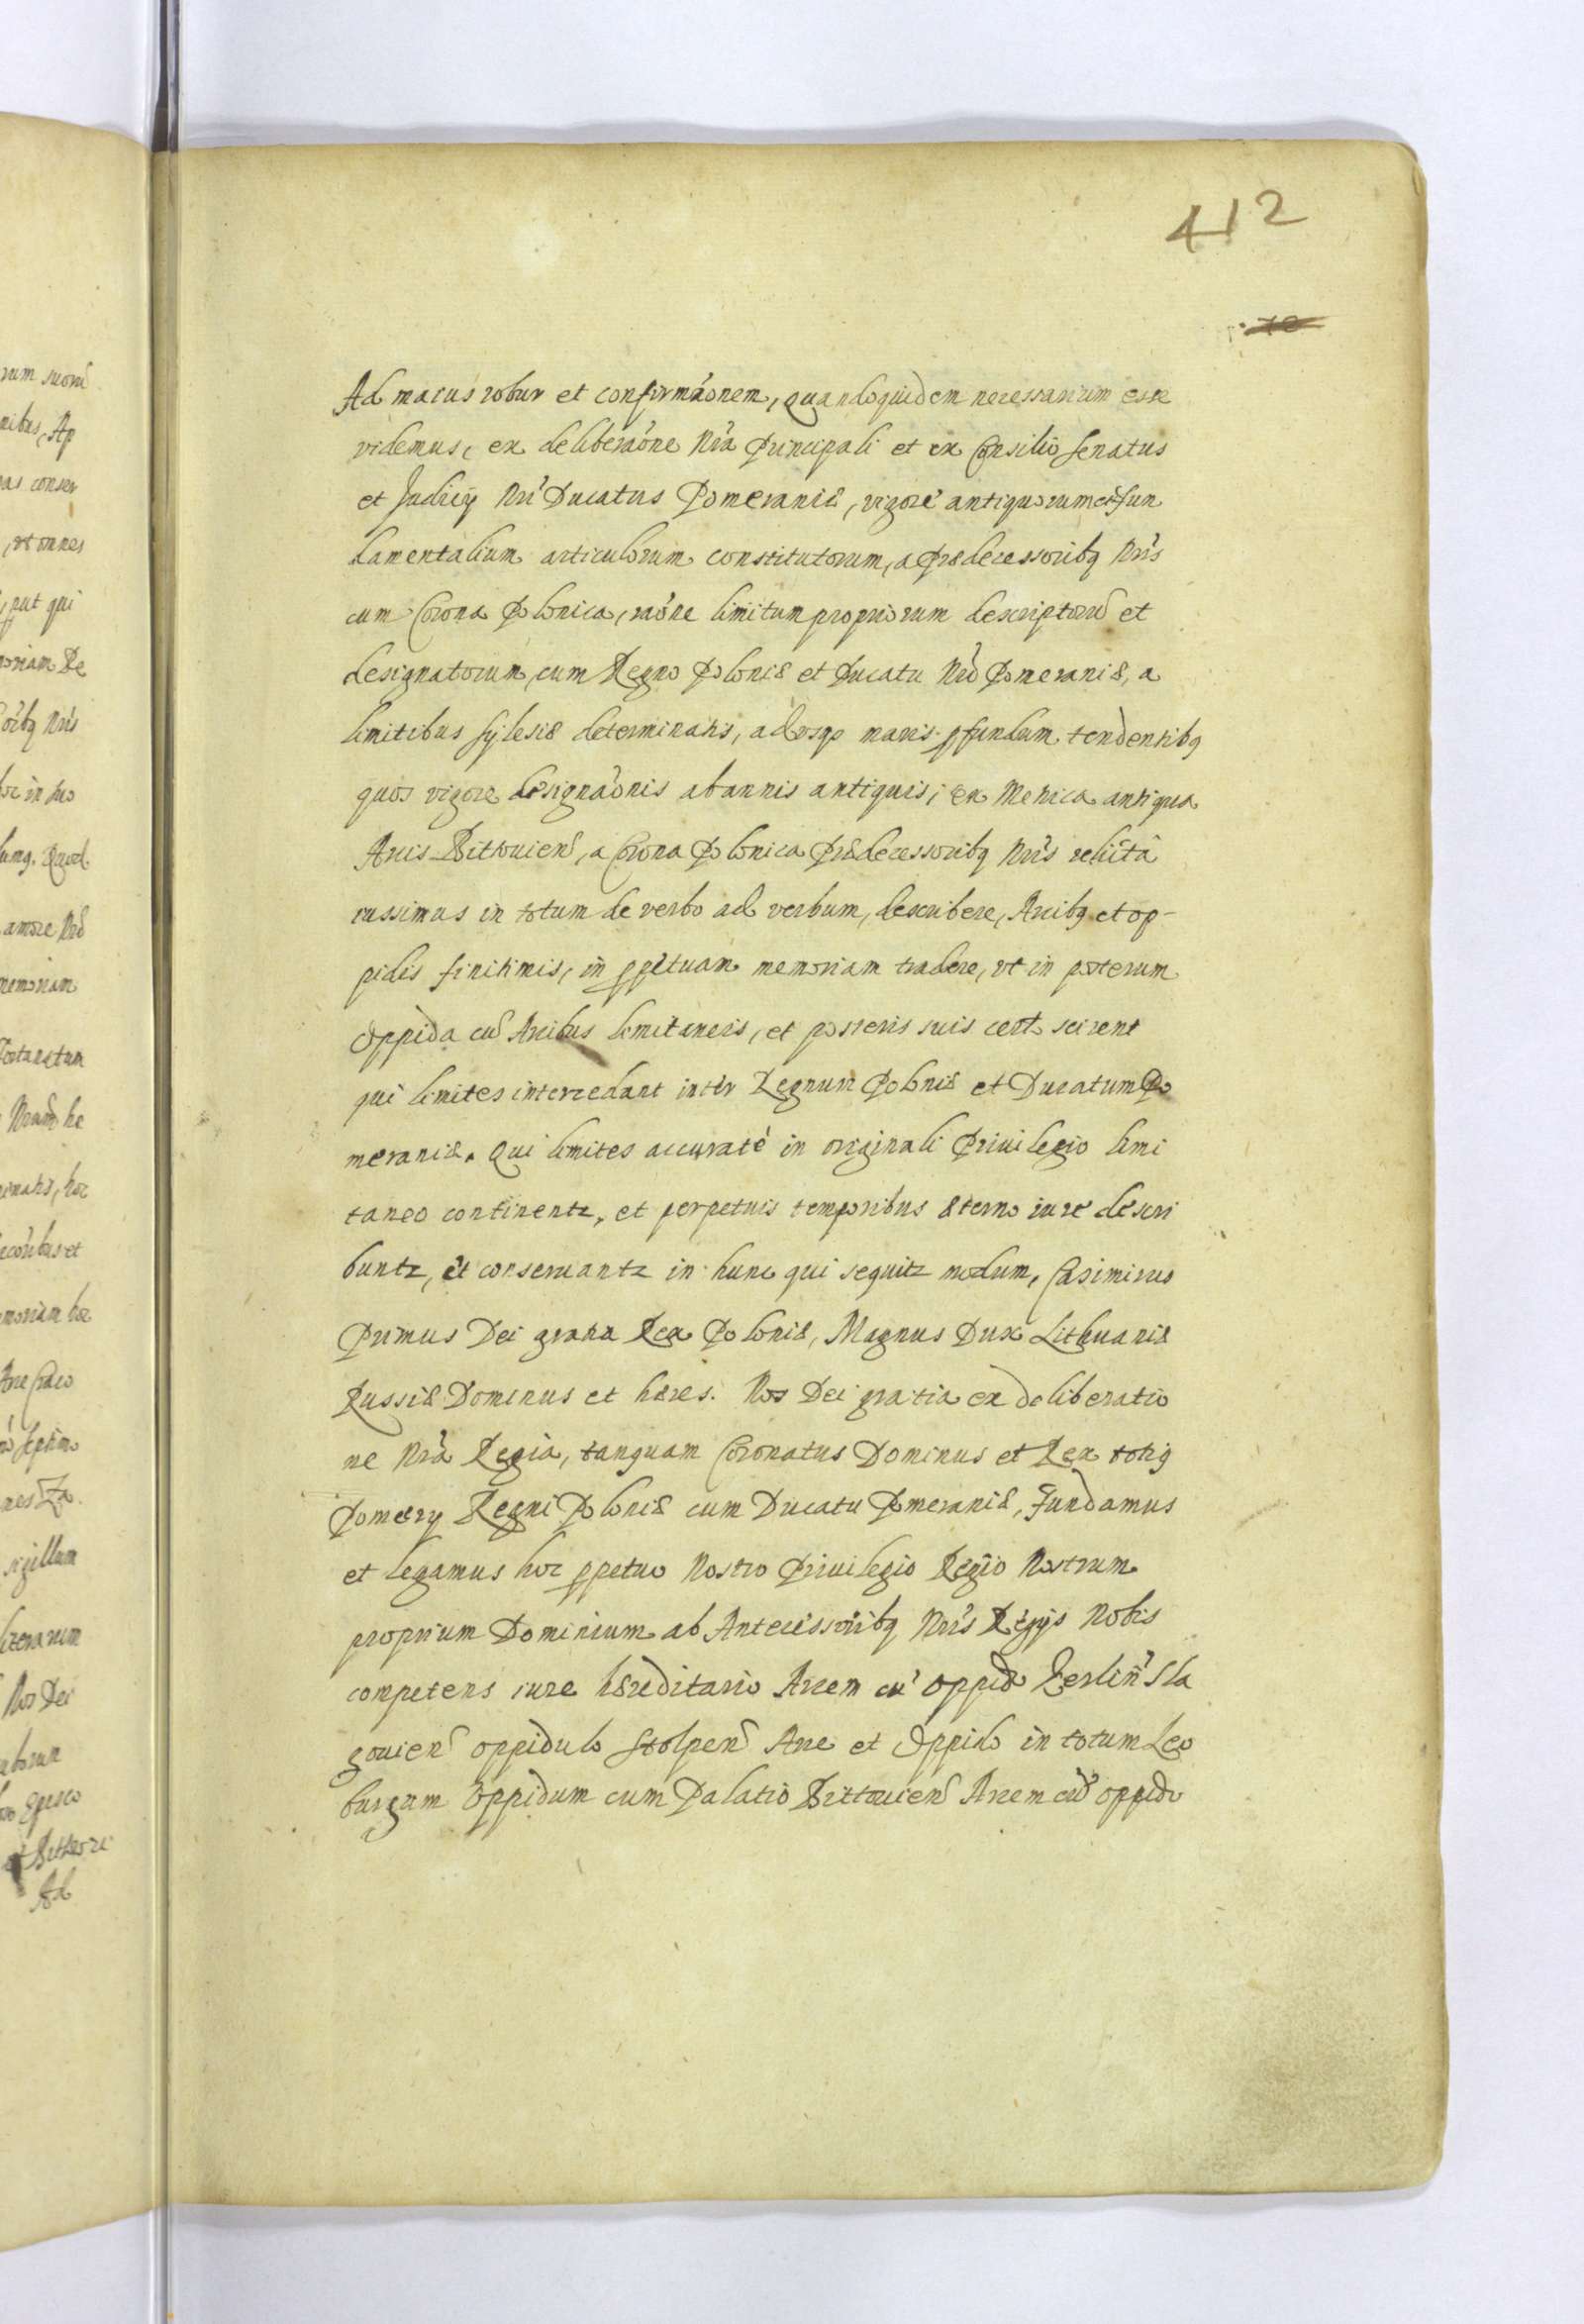 412
Ad maius robur et confirmāonem, quandoquidem necessarium esse
videmus, ex deliberāone Nrā Principali et ex Consilio Senatus
et Judicij Nrī Ducatus Pomeraniæ, vigore antiquorum et fun
damentalium articulorum constitutorum, a Prædecessoribq Nrīs
cum Corona Polonica, raōne limitum propriorum descriptorū et
designatorum, cum Regno Poloniæ et Ducatu Nrō Pomeraniæ, a
limitibus Sylesiæ determinatis, ad usqo maris pfundum tendentibq
quos vigore designāonis ab annis antiquis, ex Metrica antiqua
Arcis Bittouień, a Corona Polonica Prædecessoribq Nrīs relicta
iussimus in totum de verbo ad verbum, describere, Arcibq et op-
pidis finitimis, in ppetuam memoriam tradere, vt in posterum
Oppida cū Arcibus limitaneis, et posteris suis certo scirent
qui limites intercedant inter Regnum Poloniæ et Ducatum Po
meraniæ. Qui limites accuratè in originali Priuilegio limi
taneo continentr, et perpetuis temporibus æterno iure descri
buntr, et conseruantr in hunc qui sequitr modum, Casimirus
Primus Dei gratia Rex Poloniæ, Magnus Dux Lithuaniæ
Russiæ Dominus et hæres. Nos Dei gratia ex deliberatio
ne Nrā Regia, tanquam Coronatus Dominus et Rex totiq
Pomerij Regni Poloniæ cum Ducatu Pomeraniæ, Fundamus
et legamus hoc ppetuo Nostro Priuilegio Regio Nostrum
proprium Dominium ab Antecessoribq Nrīs Regijs Nobis
competens iure hæreditario Arcem cū oppido Zerlin̄ Sla
gouień oppidulo Stolpeń Arce et Oppido in totum Leo
burgum Oppidum cum Palatio Bittouień Arcem cū oppido